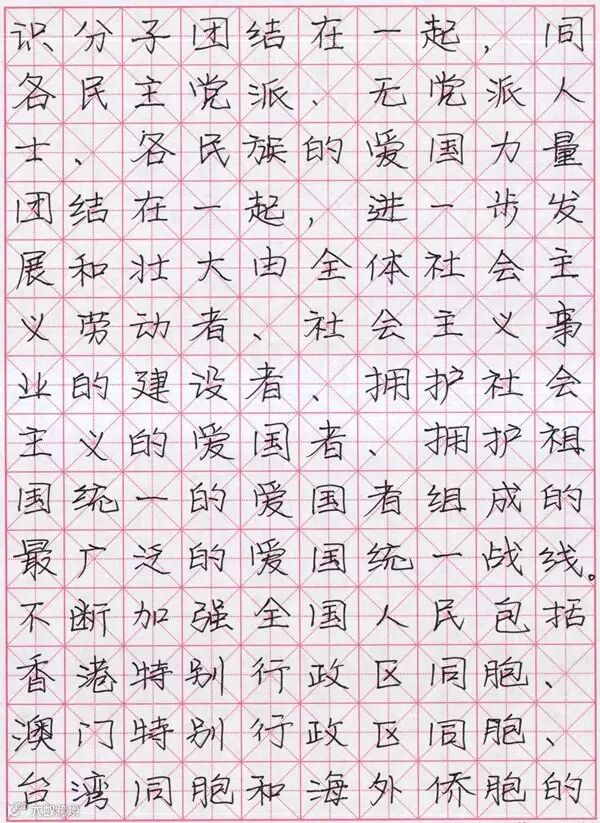 识分子团结在一起，同
各民主党派、无党派人
士、各民族的爱国力量
团结在一起，进一步发
展和壮大由全体社会主
义劳动者、社会主义事
业的建设者、拥护社会
主义的爱国者、拥护祖
国统一的爱国者组成的
最广泛的爱国统一战线。
不断加强全国人民包括
香港特别行政区同胞、
澳门特别行政区同胞、
台湾同胞和海外侨胞的